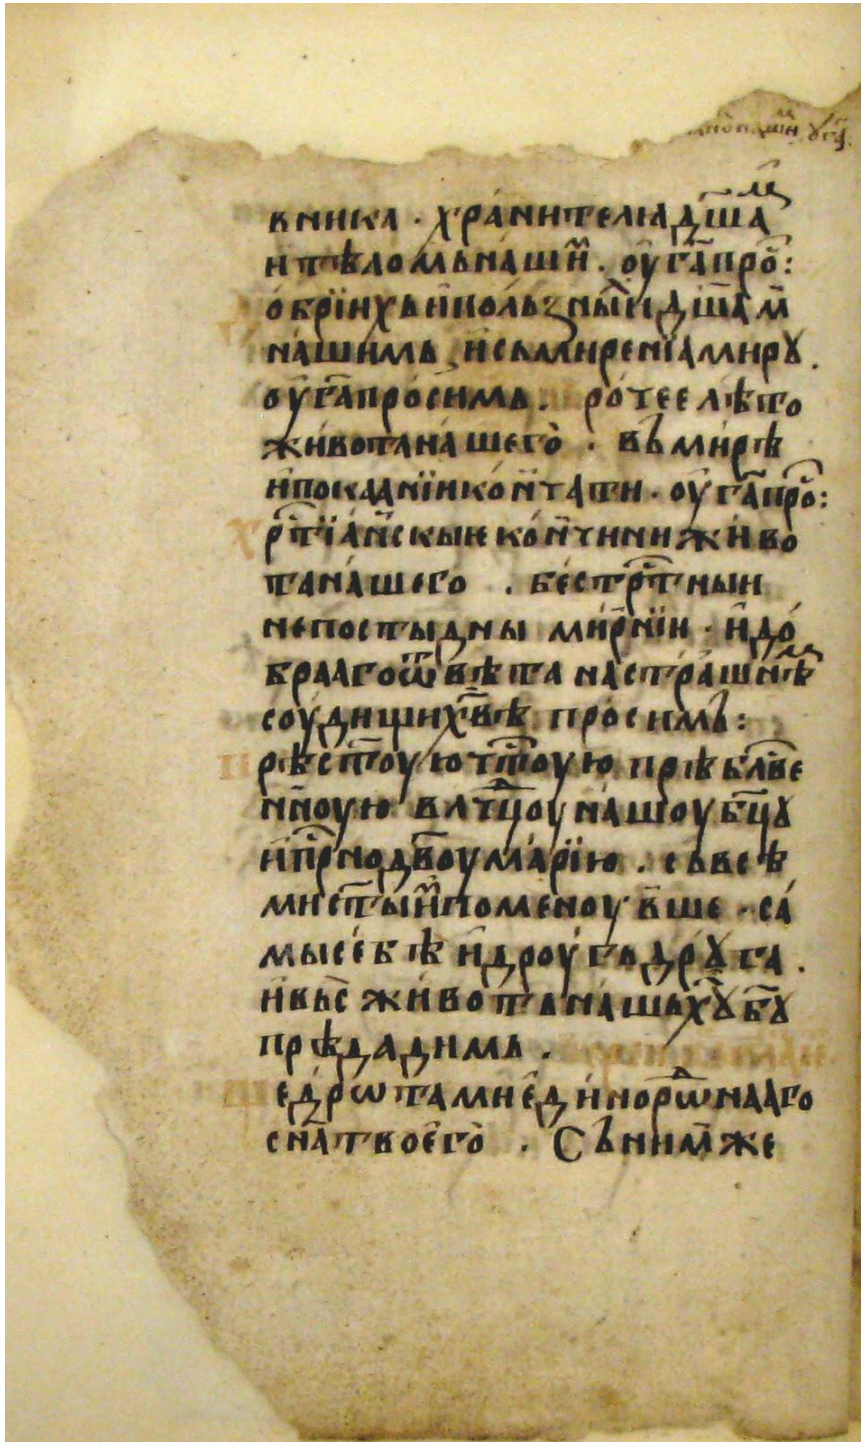 вника · хранителꙗ дш҃а ⷨ
и тѣломь наши ⷨ · оу г҃а про ⷭ:
обрїихь и пользⸯныи дш҃аⷨ
нашимь, и съмиренїа мирꙋ .
оу г҃а просимь . рочее лѣто
живота нашего · вь мирѣ
и покаанїи конⸯчати · оу г҃а про ⷭ:
рⷭ҇тїанⸯскые конⸯчини живо
та нашего . бестрⷭ҇тныи
непостыдны мирⸯнїи · и до
брааго ѿвѣта на страшнѣ ⷨ
соудищи хв҃ѣ просимь :
рѣст҃оую чⷭ҇тоую прѣбл҃ве
нⸯноую влⷣчцоу нашоу бц҃ꙋ
и прⷭ҇нодв҃оу марїю . сь всѣ
ми ст҃ыими поменоувⸯше · са
мы себѣ и дроугь дрꙋга .
и вьсⸯ животь нашь хꙋ҃ бг҃ꙋ
прѣдадимь .
едрѡтами единорѡⷣнааго
сн҃а твоего . Съ нимⸯже